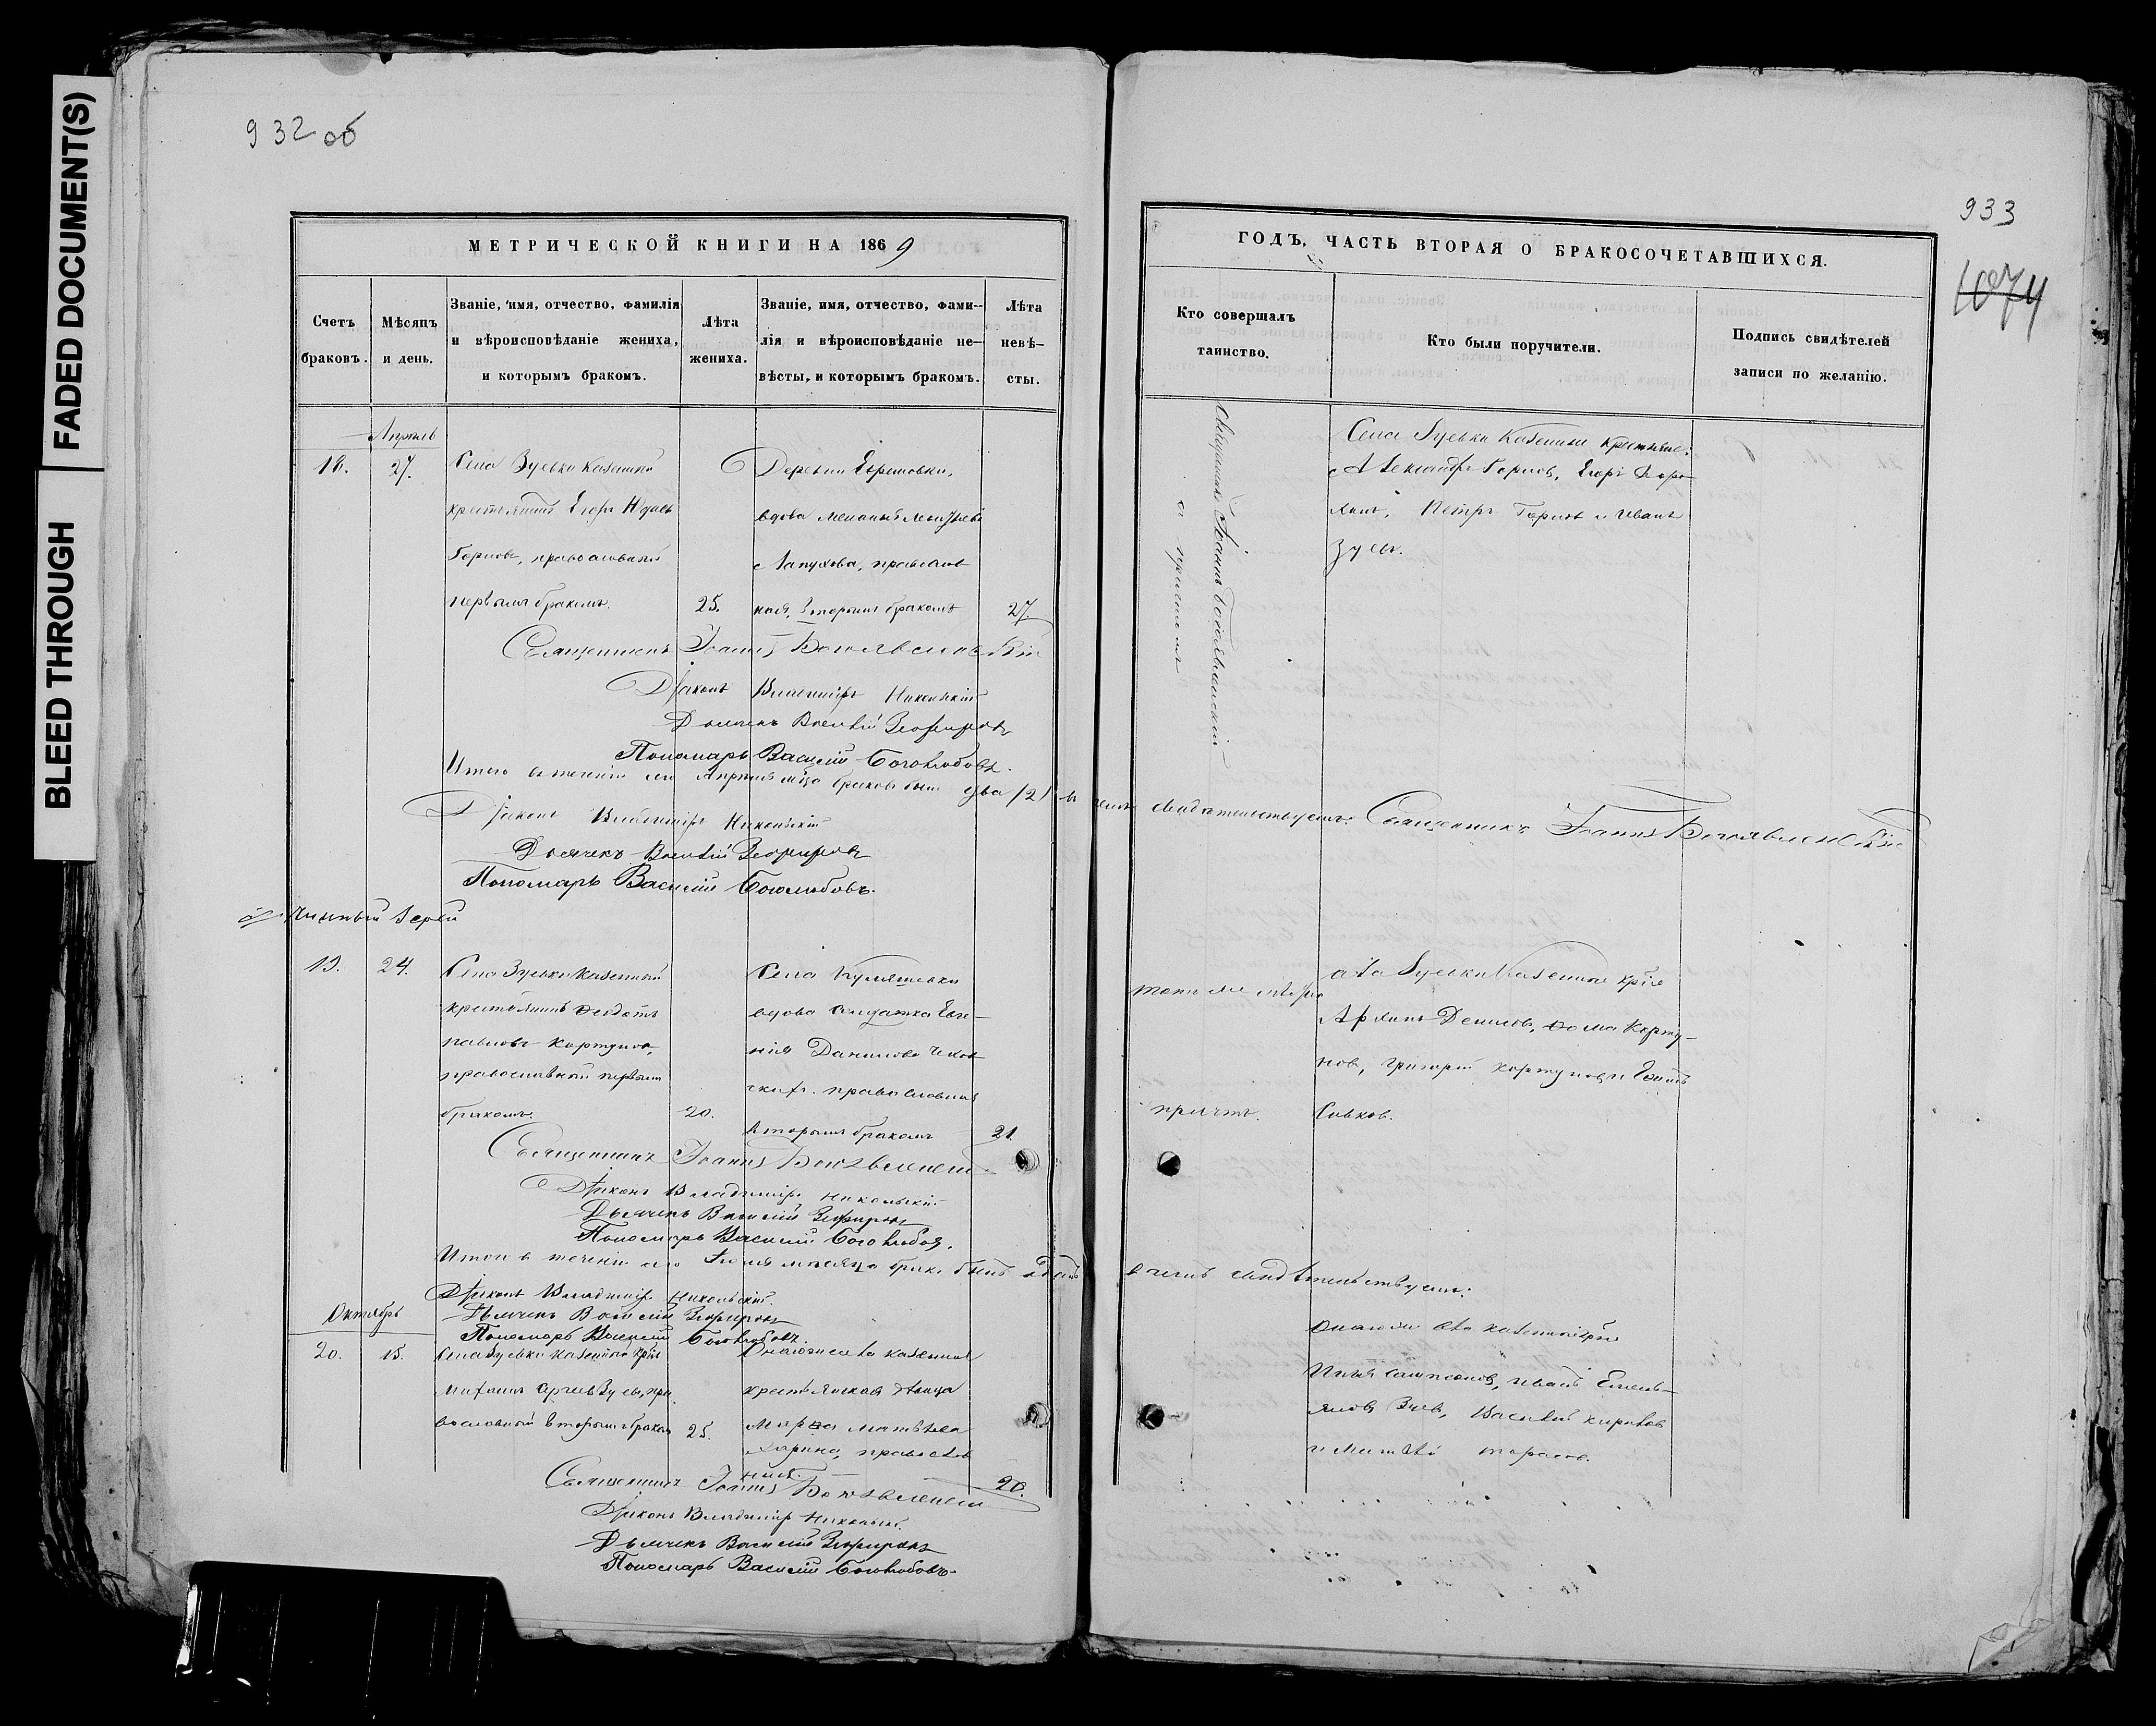 FADED DOCUMENT(S)
BLEED THROUGH
932 об
МЕТРИЧЕСКОЙ КНИГИ НА 1869
Счетъ браковъ.
Мѣсяцъ и день.
Званіе, имя, отчество, фамилія и вѣроисповѣданіе жениха, и которымъ бракомъ.
Лѣта жениха.
Званіе, имя, отчество, фамилія и вѣроисповѣданіе невѣсты, и которымъ бракомъ.
Лѣта невѣсты.
Апрѣль
18.
27.
Села Зуевки Казенный
крестьянинъ Егоръ
Горновъ, православный
первымъ бракомъ.
25.
Деревни Ефимовки,
вдова
Лапухова, православ
ная, вторымъ бракомъ
27
Священникъ Іоаннъ Богоявленскій
Діаконъ Владиміръ Никольскій
Дьячекъ Василій Зефировъ
Пономарь Василій Боголюбовъ.
Итого въ теченіи сего Апрѣля м-ца браковъ было два /2/ въ чемъ свидѣтельствуемъ:
Діаконъ Владиміръ Никольскій
Дьячекъ Василій Зефировъ
Пономарь Василій Боголюбовъ.
19.
24.
Села Зуевки казенный
крестьянинъ Ѳедотъ
Павловъ Кортуновъ,
православный первымъ
бракомъ.
20.
Села
вдова солдатка Евге-
нія Данилова
православная
вторымъ бракомъ
21.
Священникъ Іоаннъ Богоявленскій
Діаконъ Владиміръ Никольскій
Дьячекъ Василій Зефировъ
Пономарь Василій Боголюбовъ.
Итого въ теченіи сего мѣсяца бракъ былъ одинъ въ чемъ свидѣтельствуемъ:
Діаконъ Владиміръ Никольскій.
Дьячекъ Василій Зефировъ
Пономарь Василій Боголюбовъ.
Октябрь
20.
15.
Села Зуевки казенный
пра
вославный вторымъ бракомъ
25.
Онагоже села казенная
крестьянская дѣвица
Марѳа Матвѣева
Ларина, православ
ная.
20.
Священникъ Іоаннъ Богоявленскій
Діаконъ Владиміръ Никольскій.
Дьячекъ Василій Зефировъ
Пономарь Василій Боголюбовъ.
933
1074
ГОДЪ, ЧАСТЬ ВТОРАЯ О БРАКОСОЧЕТАВШИХСЯ.
Кто совершалъ таинство.
Кто были поручители.
Подпись свидѣтелей записи по желанію.
Священникъ Іоаннъ Богоявленскій
съ причтомъ
Села Зуевки Казенные крестьяне:
Александръ Горновъ, Егоръ
Петръ Горновъ и Иванъ
Зуевъ.
Священникъ Іоаннъ Богоявленскій
тотъ же
причтъ.
Села Зуевки Казенные
Денисовъ, Ѳома Корту-
новъ, Григорій Кортуновъ и
Совковъ.
Онагоже села казенные
Илья Самсоновъ, Иванъ Емель-
яновъ Зуевъ, Василій
и Матвѣй Тарасовъ.